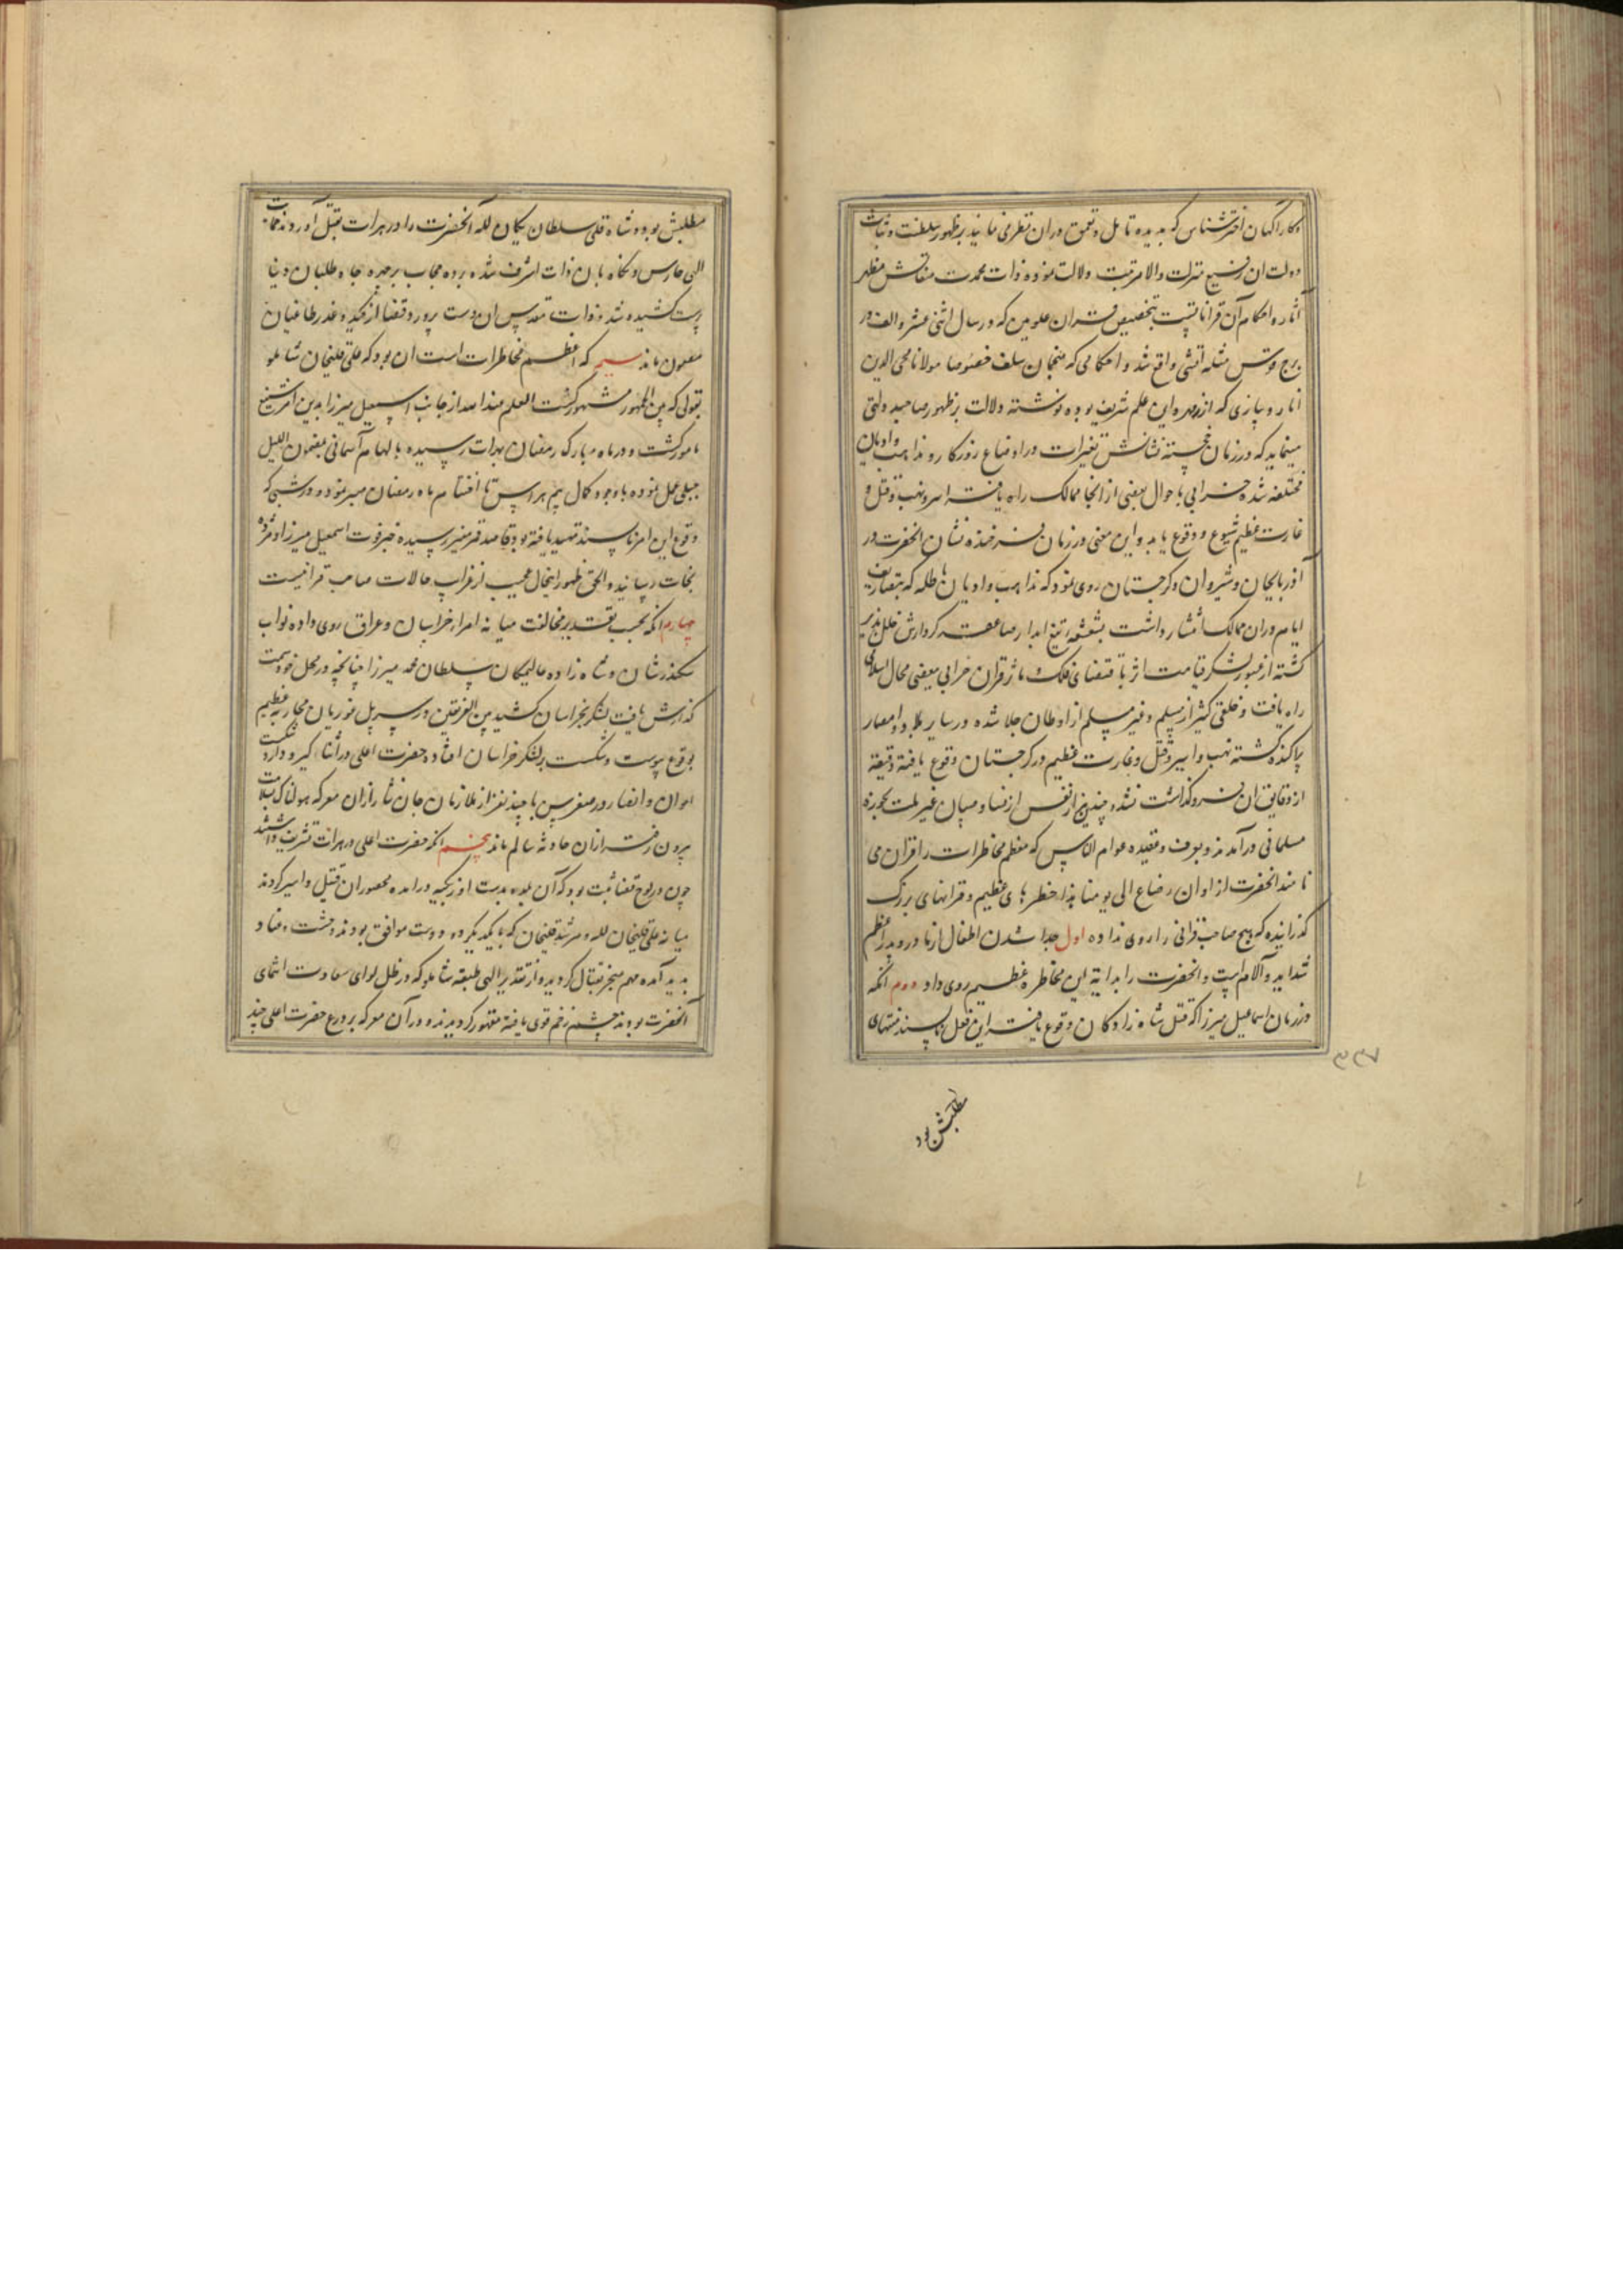 وکارآگهان اخترشناس که بدیده تامل و تعمق دران نظر می نمایند بر ظهور سلطنت و ثبات
دولت ان رفیع منزلت والامرتبت دلالت نموده ذات محمدت مناقبش مظهر
آثار و احکام آن قرانات است بتخصیص قران علویین که در سال اثنی عشر و الف در
برج قوس مثلثه آتشی واقع شد و احکامی که منجمان سلف خصوصا مولانا محیی الدین
اناری که از مهره این علم شریف بوده نوشته دلالت بر ظهور صاحبدولتی
مینماید که در زمان خجسته نشانش تغیرات در اوضاع روزکار و مذاهب و ادیان
مختلفه شده خرابی باحوال بعضی از انحا ممالک راه یافته اسر و نهب و قتل و
غارت عظیم شیوع و وقوع یابد و این معنی در زمان فرخنده نشان انحضرت در
آذربایجان و شیروان و کرجستان روی نمود که مذاهب و ادیان باطله که بتصاریف
ایام دران ممالک انتشار داشت بشعشعه تیغ ابدار صاعقه کردارش خلل پذیر
کشته از عبور لشکر قیامت اثر باقتضای فلک ماثر قران خرابی ببعضی محال اسلامی
راه یافت و خلقی کثیر از مسلم و غیر مسلم از اوطان جلا شده در سایر بلاد و امصار
پراکنده کشته نهب و اسیر و قتل و غارت عظیم در کرجستان وقوع یافته دقیقه
از دقایق ان فروکذاشت نشد و چندین هزار نفس از نسا و صبیان غیر ملت بحوزه
مسلمانی درآمدند و بعرف و عقیده عوام الناس که معظم مخاطرات را قران می
نامند انحضرت از اوان رضاع الی یومنا هذا خطرهای عظیم و قرانهای بزرک
کذرانیده که هیچ صاحب قرانی را روی نداده اول جدا شدن اطفال از مادر و پدر اعظم
شداید و آلام است و انحضرت را بدایة این مخاطره عظیم روی داد دوم انکه
در زمان اسماعیل میرزا که قتل شاه زادکان وقوع یافت این فعل ناپسند منتهای
۳۳۷
مطلبش بود
مطلبش بود و شاه قلی سلطان یکان لله آنحضرت را در هرات بقتل آوردند حمایت
الهی حارس و نکاه بان ذات اشرف شده پرده حجاب بر چهره جاه طلبان دنیا
پرست کشیده شد و ذات مقدس ان دست پرورد قضا از کید و غدر طاغیان
مصون ماند سیم که اعظم مخاطرات است ان بود که علی قلیخان شاملو
بقولی که بین الجمهور مشهور کشت العلم عندالله از جانب اسمعیل میرزا بدین امر شنیع
مامور کشت و در ماه مبارک رمضان بهرات رسیده بالهام آسمانی بمضمون اللیل
حبلی عمل نموده باوجود کمال بیم و هراس تا اختتام ماه رمضان صبر نموده در شبی که
وقوع این امر ناپسند تمهید یافته بود قاصد رسیده خبر فوت اسمعیل میرزا و مژده
نجات رسانید و الحق ظهور اینحال عجیب از غرایب حالات صاحب قرانیست
چهارم انکه بحسب تقدیر مخالفت میانه امراء خراسان و عراق روی داده نواب
سکندرشان و شاه زاده عالمیکان سلطان محمد میرزا چنانچه در محل خود سمت
کذارش یافت لشکر بخراسان کشیده بین الفریقین در سر پل غوریان محاربه عظیم
بوقوع پیوست و شکست بر لشکر خراسان افتاده حضرت اعلی در اثناء کیر و دار و شکست
اعوان و انصار در صغر سن با چند نفر از ملازمان جان نثار از ان معرکه هولناک بسلامت
بیرون رفته از ان حادثه سالم ماند پنجم انکه حضرت اعلی در هرات تشریف داشتند
چون در لوح قضا ثبت بود که آن بلده بدست اوزبکیه درامده محصوران قتیل و اسیر کردند
میانه علی قلیخان لله و مرشد قلیخان که با یکدیکر دو دوست موافق بودند وحشت و عناد
پدید آمده مهم منجر بقتال کردید و از تقدیر الهی طبقه شاملو که در ظل لوای سعادت انتمای
آنحضرت بودند چشم زخم قوی یافته مقهور کردیدند و در آن معرکه بر درع حضرت اعلی چند